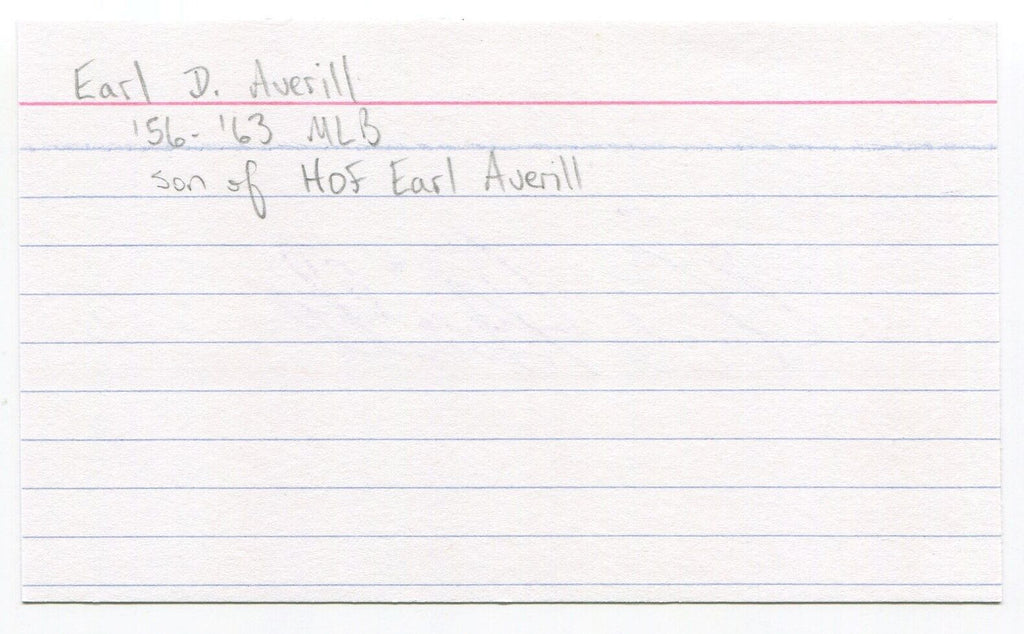 Earl D. Averill
'56-'63 MLB
son of HOF Earl Averill